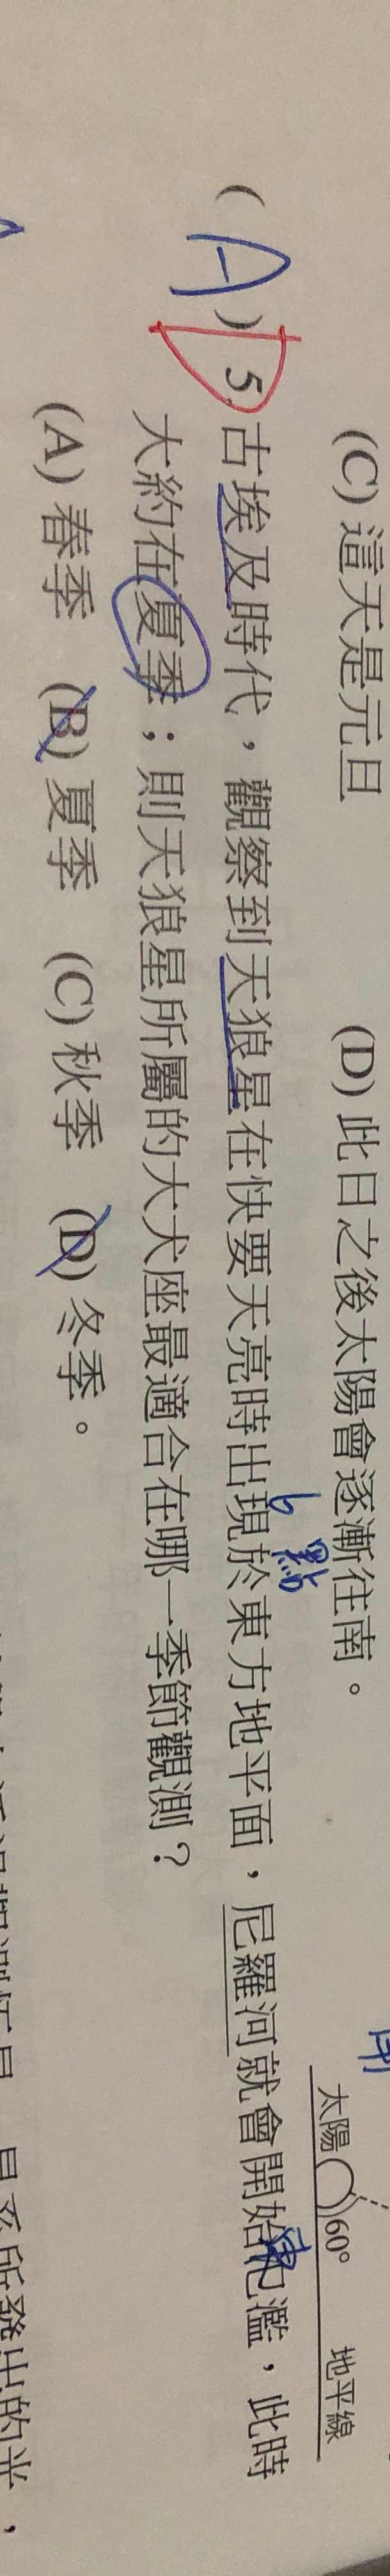 (C) 這天是元旦 (D) 此日之後太陽會逐漸往南。
太陽 60° 地平線
6 點
( A ) 5. 古埃及時代，觀察到天狼星在快要天亮時出現於東方地平面，尼羅河就會開始氾濫，此時
大約在夏季；則天狼星所屬的大犬座最適合在哪一季節觀測？
(A) 春季 (B) 夏季 (C) 秋季 (D) 冬季。
D